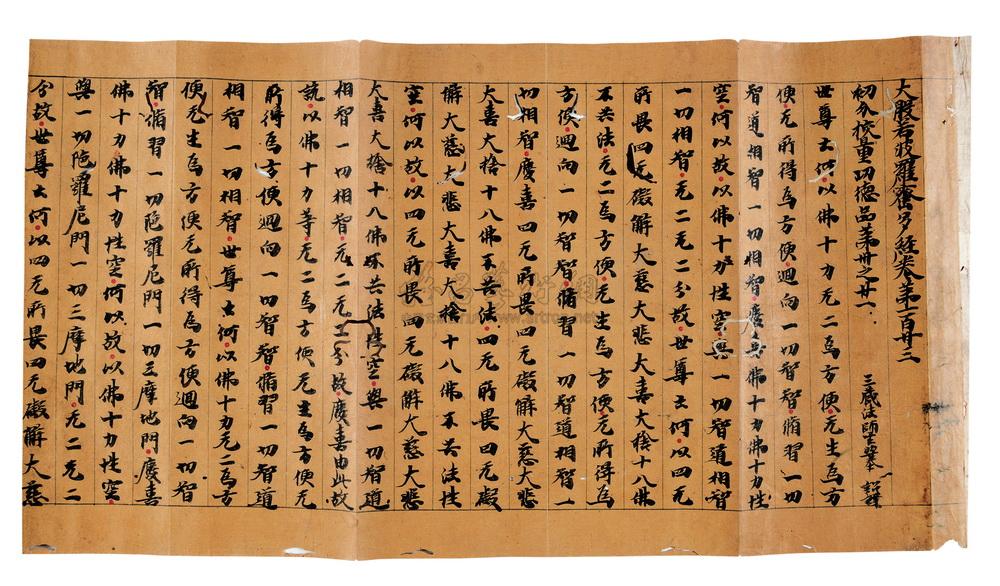 大般若波羅蜜多經卷第一百廿三
初分校量功德品第卅之廿一
三藏法師玄奘奉 詔譯
世尊云何以佛十力无二為方便无生為方
便无所得為方便迴向一切智智脩習一切
智道相智一切相智慶喜佛十力佛十力性
空何以故以佛十力性空與一切智道相智
一切相智无二无二分故世尊云何以四无
所畏四无礙解大慈大悲大喜大捨十八佛
不共法无二為方便无生為方便无所得為
方便迴向一切智智脩習一切智道相智一
切相智慶喜四无所畏四无礙解大慈大悲
大喜大捨十八佛不共法四无所畏四无礙
解大慈大悲大喜大捨十八佛不共法性
空何以故以四无所畏四无礙解大慈大悲
大喜大捨十八佛不共法性空與一切智道
相智一切相智无二无二分故慶喜由此故
說以佛十力等无二為方便无生為方便无
所得為方便迴向一切智智脩習一切智道
相智一切相智世尊云何以佛十力无二為方
便无生為方便无所得為方便迴向一切智
智脩習一切陁羅尼門一切三摩地門慶喜
佛十力佛十力性空何以故以佛十力性空
與一切陁羅尼門一切三摩地門无二无二
分故世尊云何以四无所畏四无礙解大慈